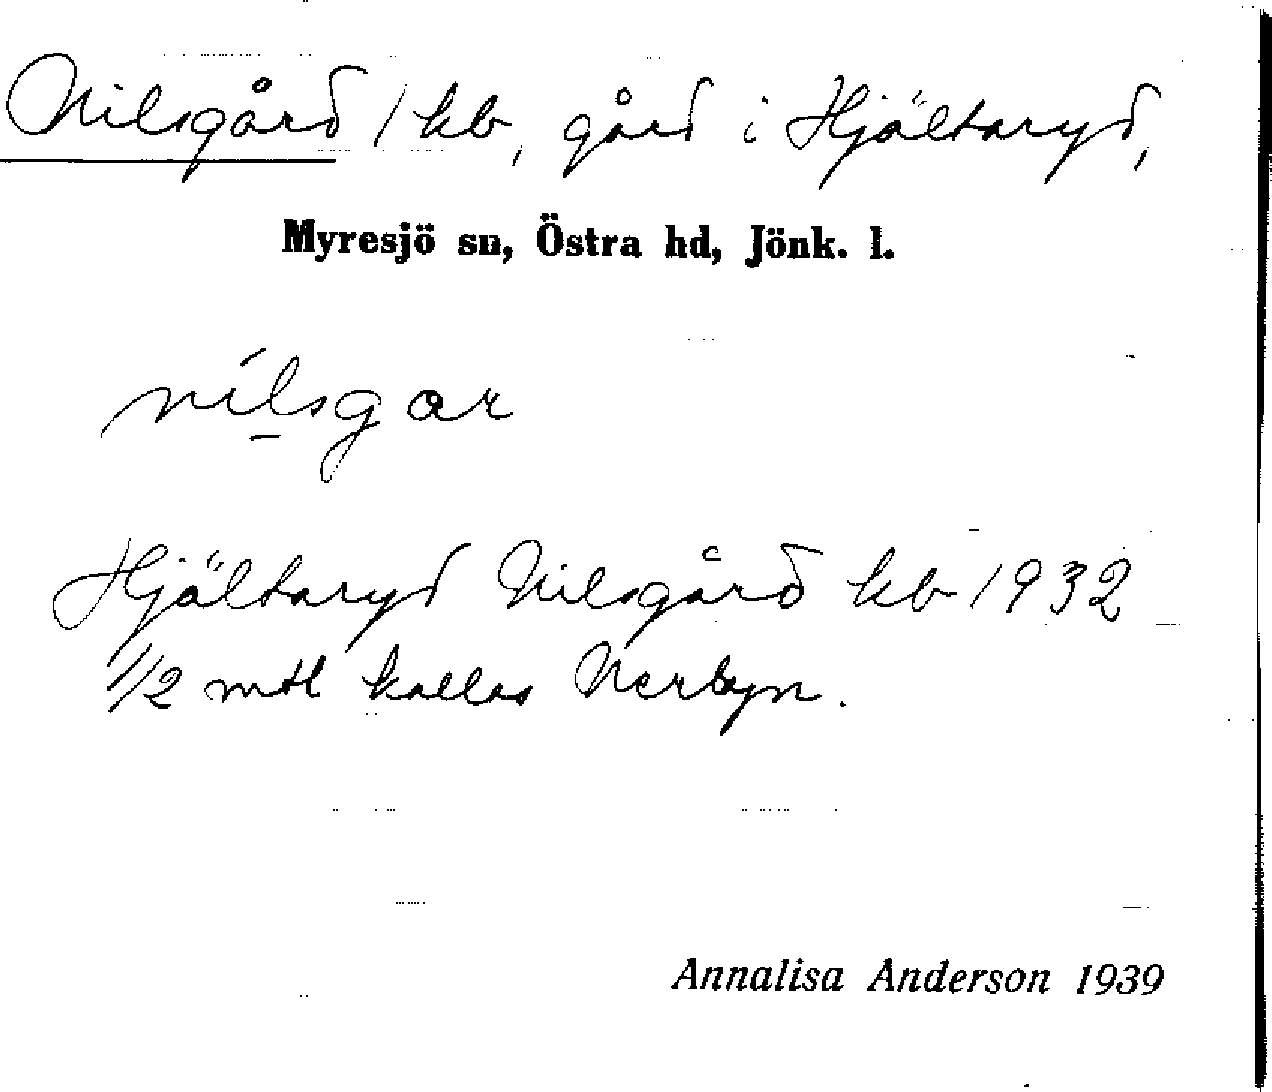 Nilsgård 1 kb, gård i Hjältaryd,
Myresjö sn, Östra hd, Jönk. l.
nílsgar
Hjältaryd Nilsgård kb 1932
1/2 mtl kallas Nerbyn.
Annalisa Anderson 1939